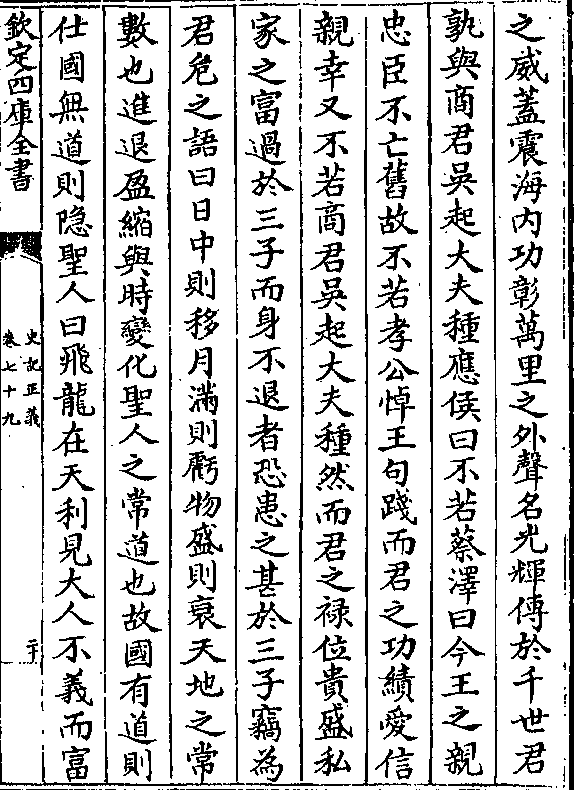 之威蓋震海内功彰萬里之外聲名光輝傳於千世君
孰與商君吳起大夫種應侯曰不若蔡澤曰今王之親
忠臣不亡舊故不若孝公悼王句踐而君之功績愛信
親幸又不若商君吳起大夫種然而君之祿位貴盛私
家之富過於三子而身不退者恐患之甚於三子竊為
君危之語曰日中則移月滿則虧物盛則衰天地之常
數也進退盈縮與時變化聖人之常道也故國有道則
仕國無道則隐聖人曰飛龍在天利見大人不義而富
欽定四庫全書
史記正義
卷七十九
二十